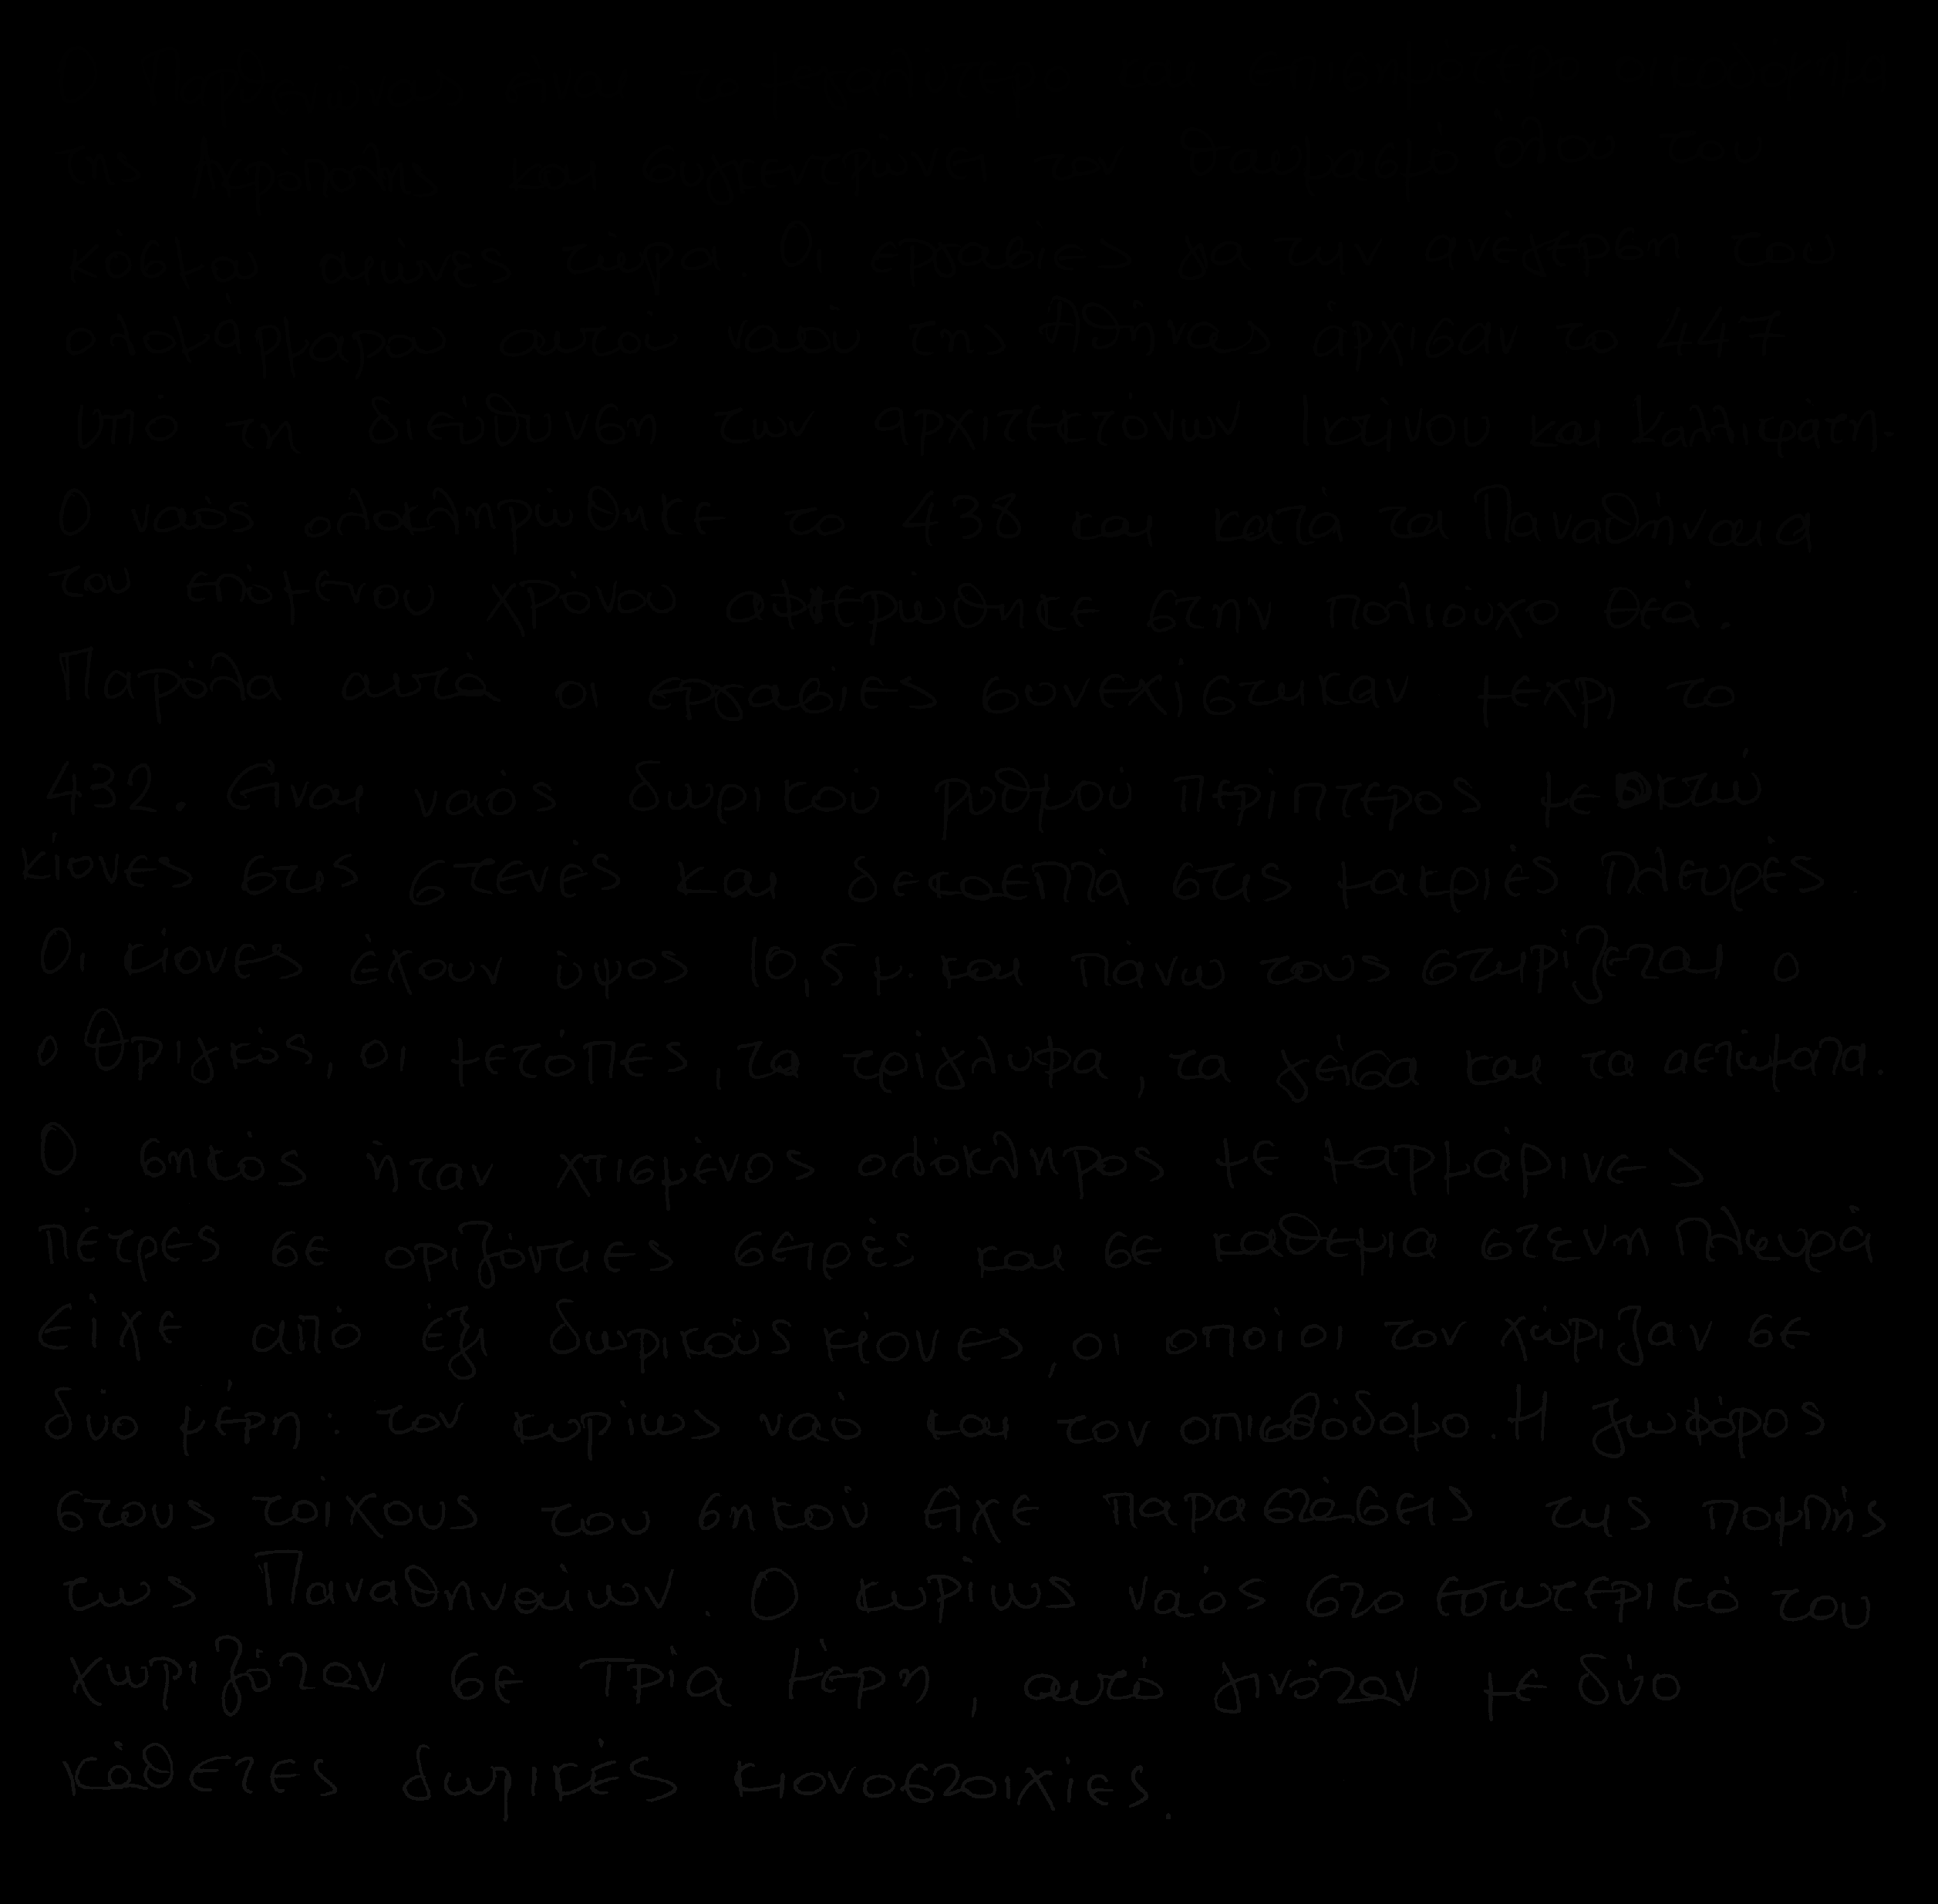 της Ακρόπολης και συγκεντρώνει τον θαυμασμό όλου του
κόσμου αιώνες τώρα. Οι εργασίες για την ανέγερση του
ολομάρμαρου αυτού ναού της Αθήνας άρχισαν το 447
υπό τη διεύθυνση των αρχιτεκτόνων Ικτίνου και Καλλικράτη.
Ο ναός ολοκληρώθηκε το 438 και κατά τα Παναθήναια
του επόμενου χρόνου αφιερώθηκε στην πολιούχο θεά.
Παρόλα αυτά οι εργασίες συνεχίστηκαν μεχρι το
432. Είναι ναός δωρικού ρυθμού περίπτερος με οκτώ
κίονες στις στενές και δεκαεπτά στις μακριές πλευρές.
Οι κίονες έχουν ύψος 10,5 μ. και πάνω τους στηρίζεται ο
ο θριγκός, οι μετόπες, τα τρίγλυφα, τα γείσα και τα αετώματα.
Ο σηκός ήταν χτισμένος ολόκληρος με μαρμάρινες
πέτρες σε οριζόντιες σειρές και σε καθεμια στενη πλευρά
είχε από έξι δωρικούς κίονες, οι οποίοι τον χώριζαν σε
δύο μέρη: τον κυρίως ναό και τον οπισθόδομο. Η ζωφόρος
στους τοίχους του σηκού είχε παραστάσεις της πομπής
των Παναθηναίων. Ο κυρίως ναός στο εσωτερικό του
χωριζόταν σε τρία μέρη, αυτό γινόταν με δύο
κάθετες δωρικές κιονοστοιχίες.